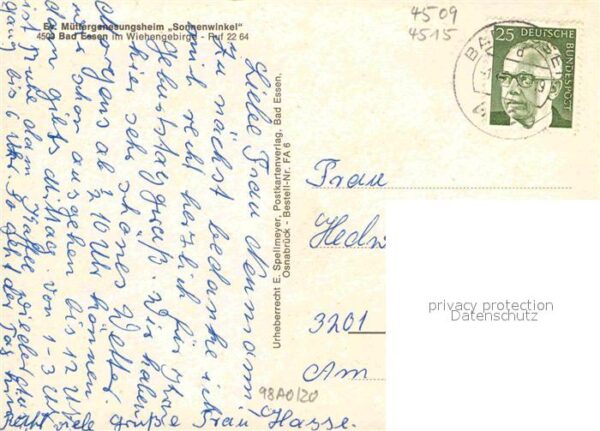 Ev. Müttergenesungsheim „Sonnenwinkel"
4509 Bad Essen im Wiehengebirge - Ruf 22 64
4509
4515
25 DEUTSCHE
BUNDESPOST
Liebe Frau Neumann,
Zu nächst bedanke ich
mich recht herzlich für Ihre
Geburtstagsgruß. Wir haben
hier sehr schönes Wetter.
Morgens ab ½ 10 Uhr können
wir schon ausgehen bis 12 Uhr
dann giebts Mittag. von 1-3 Uhr
ist Ruhe dann Kaffee wieder
bis 6 Uhr. So geht der Tag
viele Grüße Frau Hasse.
Urheberrecht E. Spellmeyer, Postkartenverlag, Bad Essen.
Osnabrück - Bestell-Nr. FA 6
Frau
3201
Am
privacy protection
Datenschutz
98A0120